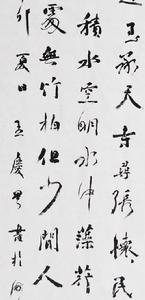 至承天寺尋張懷民
積水空明水中藻荇
處無竹柏但少閒人
卯夏日慶書於